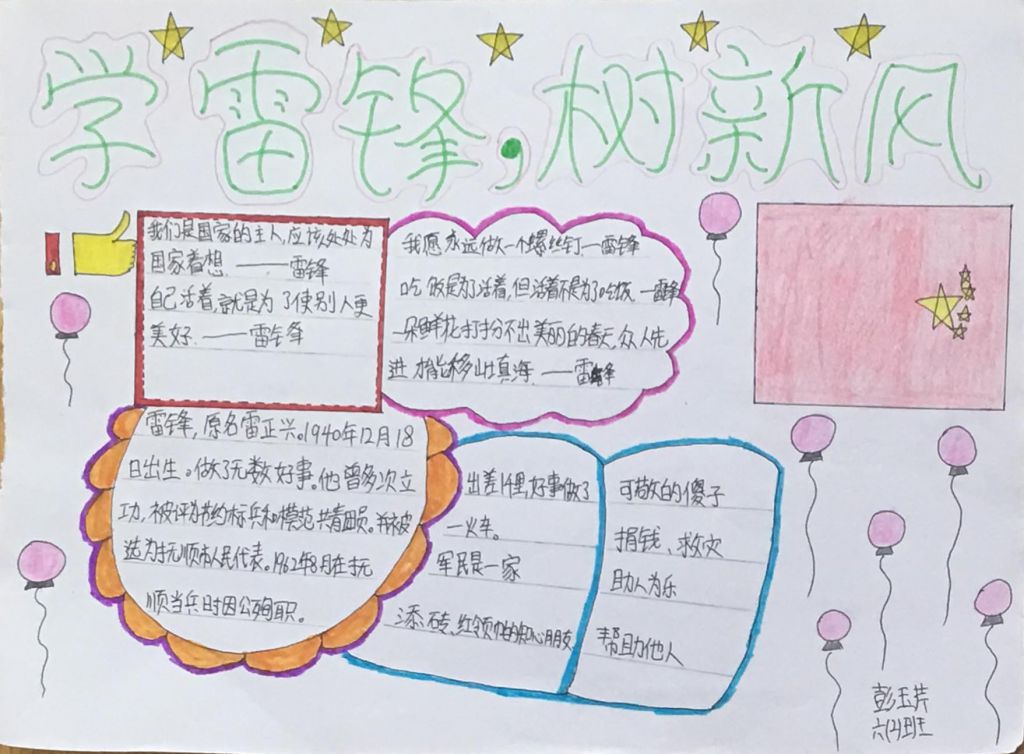 学雷锋,树新风
我们是国家的主人,应该处处为
国家着想.——雷锋
自己活着,就是为了使别人更
美好.——雷锋
我愿永远做一个螺丝钉.—雷锋
吃饭是为了活着,但活着不是为了吃饭.—雷锋
一朵鲜花打扮不出美丽的春天,众人先
进才能移山填海.——雷锋
雷锋,原名雷正兴。1940年12月18
日出生。做了无数好事。他曾多次立
功,被评为节约标兵和模范共青团员。并被
选为抚顺市人民代表。1962年8月在抚
顺当兵时因公殉职。
出差1千里,好事做了
一火车。
军民是一家
添砖、红领巾的知心朋友
可敬的傻子
捐钱、救灾
助人为乐
帮助他人
彭玉芹
六(2)班